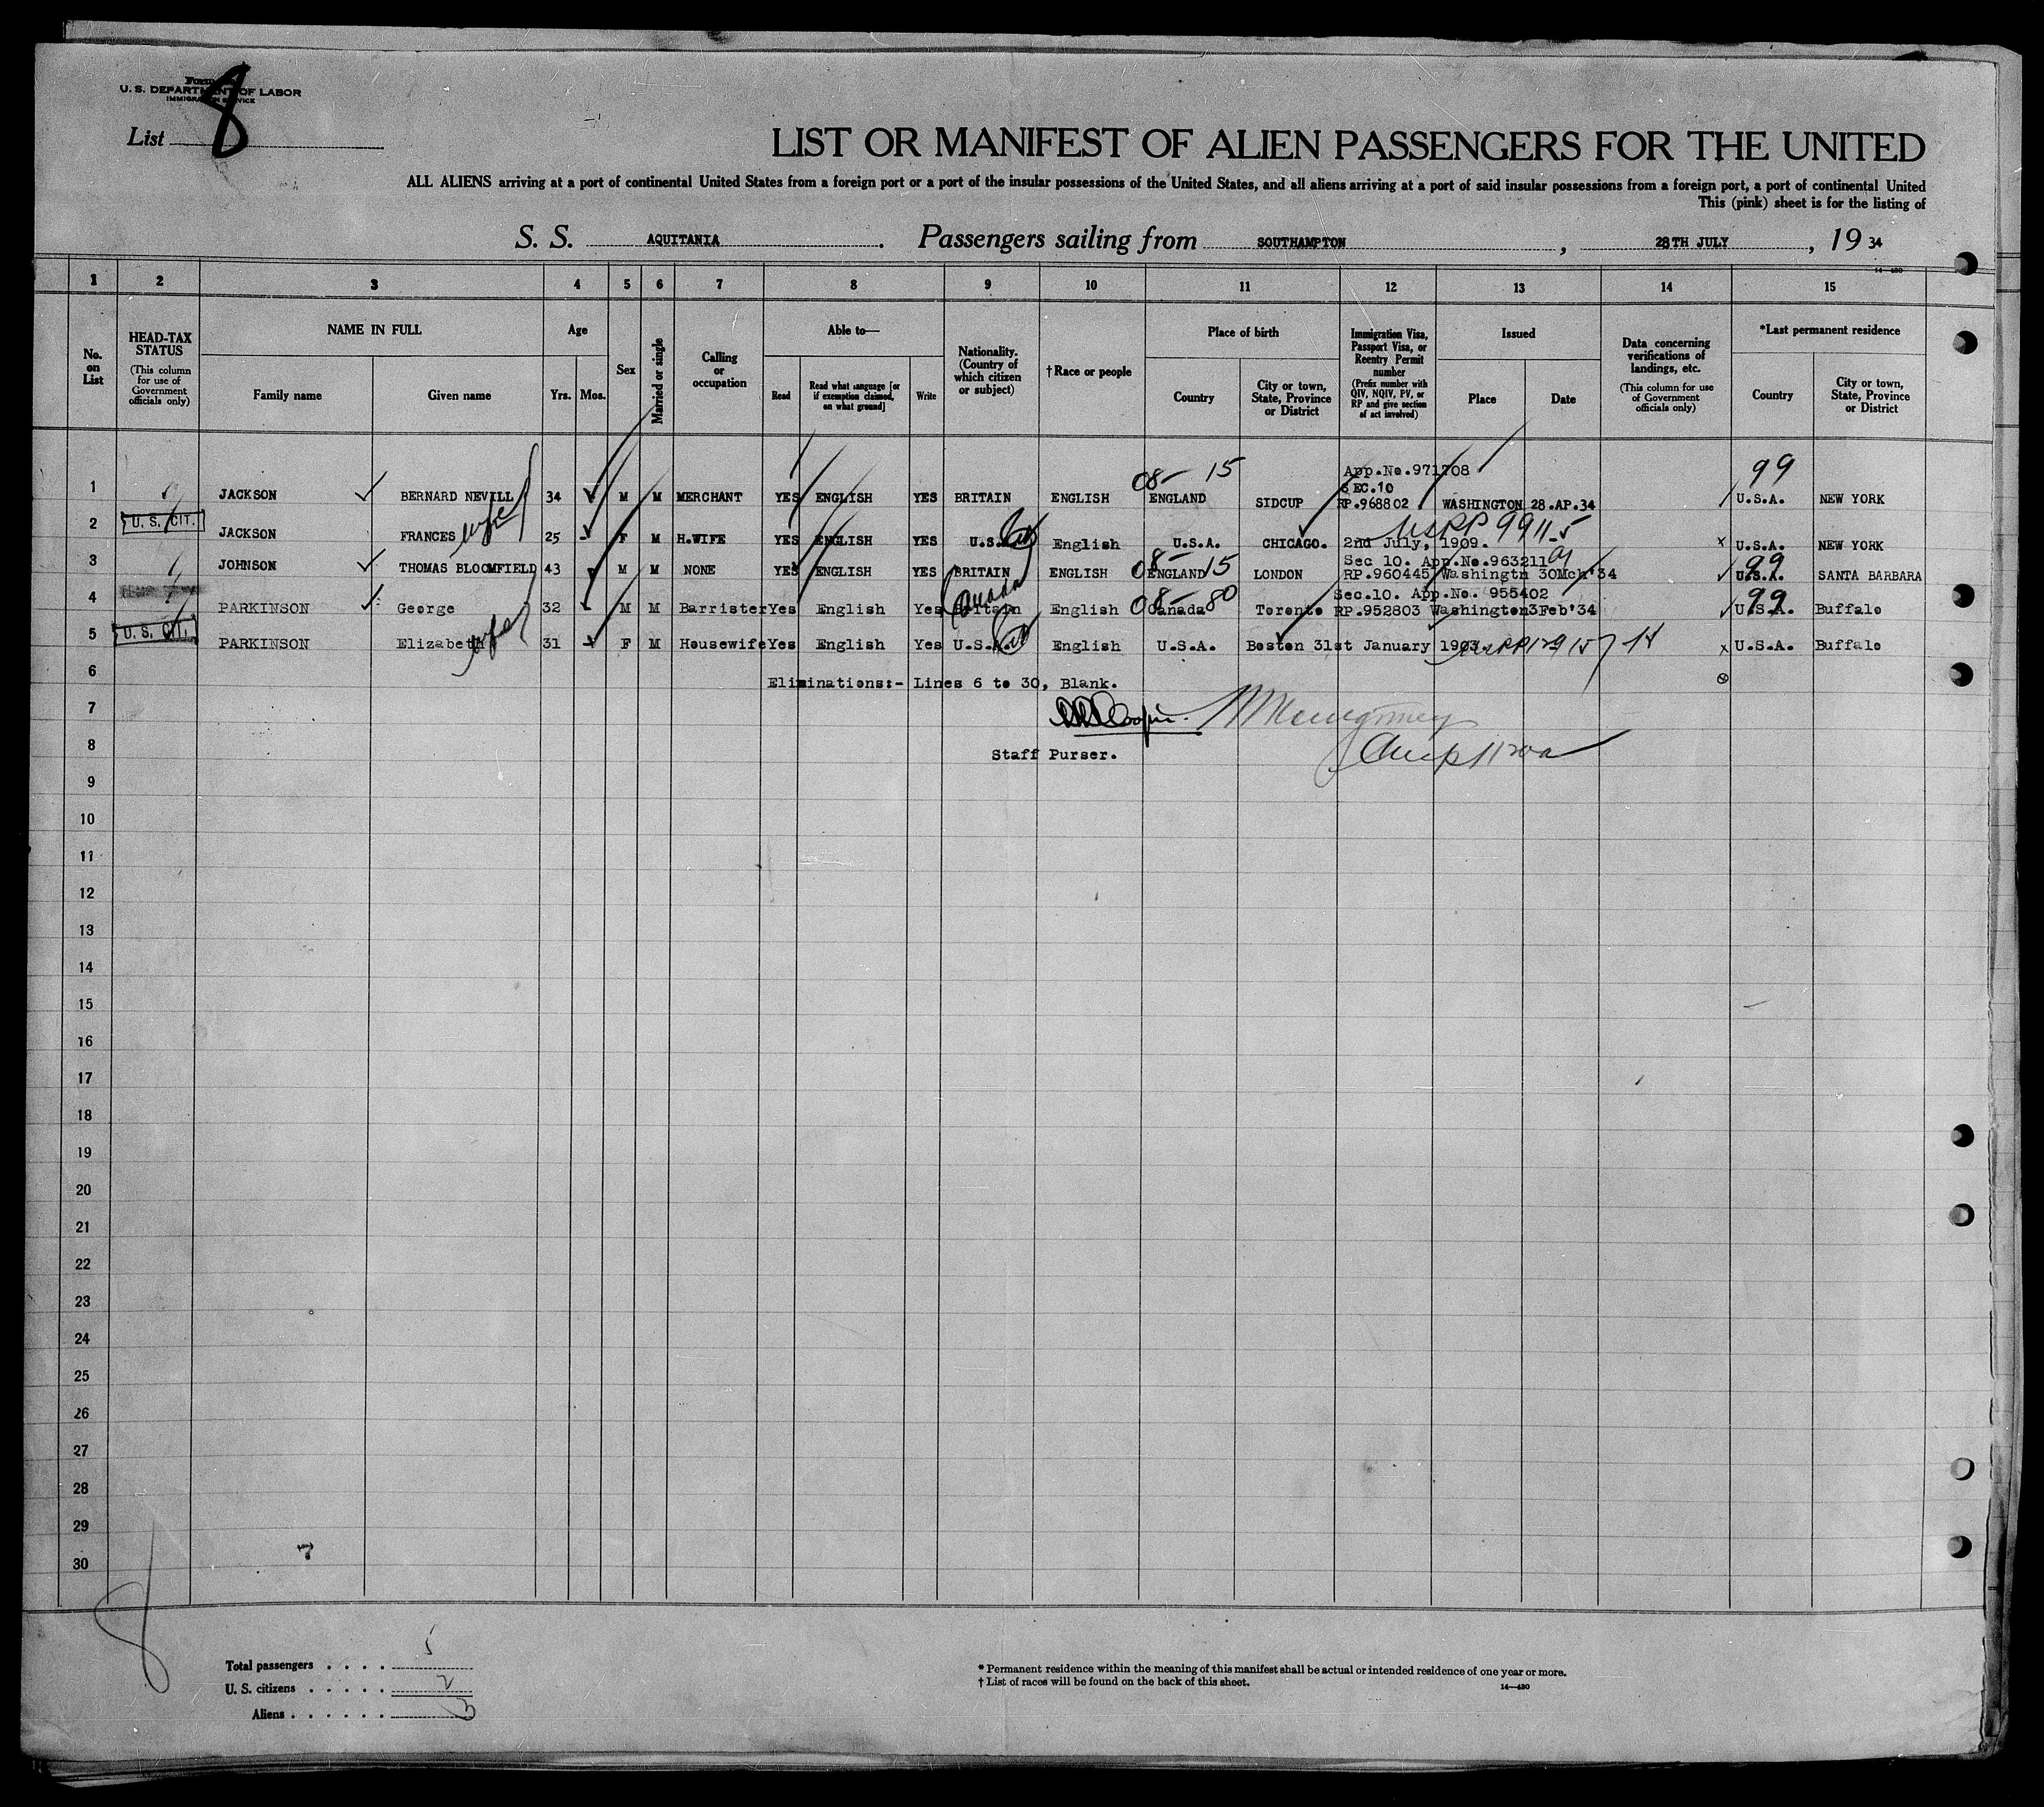 Form
U. S. DEPARTMENT OF LABOR
IMMIGRATION SERVICE
List 8
LIST OR MANIFEST OF ALIEN PASSENGERS FOR THE UNITED
ALL ALIENS arriving at a port of continental United States from a foreign port or a port of the insular possessions of the United States, and all aliens arriving at a port of said insular possessions from a foreign port, a port of continental United
This (pink) sheet is for the listing of
S. S. AQUITANIA . Passengers sailing from SOUTHAMPTON , 28TH JULY , 19 34
14—430
1 2 3 4 5 6 7 8 9 10 11 12 13 14 15
No. on List
HEAD-TAX STATUS (This column for use of Government officials only)
NAME IN FULL
Family name
Given name
Age
Yrs. Mos.
Sex
Married or single
Calling or occupation
Able to—
Read
Read what language [or if exemption claimed, on what ground]
Write
Nationality. (Country of which citizen or subject)
†Race or people
Place of birth
Country
City or town, State, Province or District
Immigration Visa, Passport Visa, or Reentry Permit number (Prefix number with QIV, NQIV, PV, or RP and give section of act involved)
Issued
Place
Date
Data concerning verifications of landings, etc. (This column for use of Government officials only)
*Last permanent residence
Country
City or town, State, Province or District
08- 15 App.No.971708 99
SEC.10
1 JACKSON BERNARD NEVILL 34 M M MERCHANT YES ENGLISH YES BRITAIN ENGLISH ENGLAND SIDCUP RP.968802 WASHINGTON 28.AP.34 U.S.A. NEW YORK
USRP 9911-5
2 U. S. CIT. JACKSON FRANCES wife 25 - F M H.WIFE YES ENGLISH YES U.S.A. English U.S.A. CHICAGO. 2nd July, 1909. x U.S.A. NEW YORK
08- 15 Sec 10. App.No.963211 99
3 JOHNSON THOMAS BLOOMFIELD 43 M M NONE YES ENGLISH YES BRITAIN ENGLISH ENGLAND LONDON RP.960445 Washingtn 30Mch'34 U.S.A. SANTA BARBARA
Canada 08- 80 Sec.10. App.No. 955402 99
4 PARKINSON George 32 - M M Barrister Yes English Yes Britain English Canada Toronto RP.952803 Washington 3Feb'34 U.S.A. Buffalo
5 U. S. CIT. PARKINSON Elizabeth wife 31 - F M Housewife Yes English Yes U.S.A. English U.S.A. Boston 31st January 1903. x U.S.A. Buffalo
6 Eliminations:- Lines 6 to 30, Blank.
7
8 Staff Purser.
9
10
11
12
13
14
15
16
17
18
19
20
21
22
23
24
25
26
27
28
29
30
7
8
Total passengers . . . . 5
U. S. citizens . . . . . 2
Aliens . . . . . . 3
* Permanent residence within the meaning of this manifest shall be actual or intended residence of one year or more.
† List of races will be found on the back of this sheet.
14—430